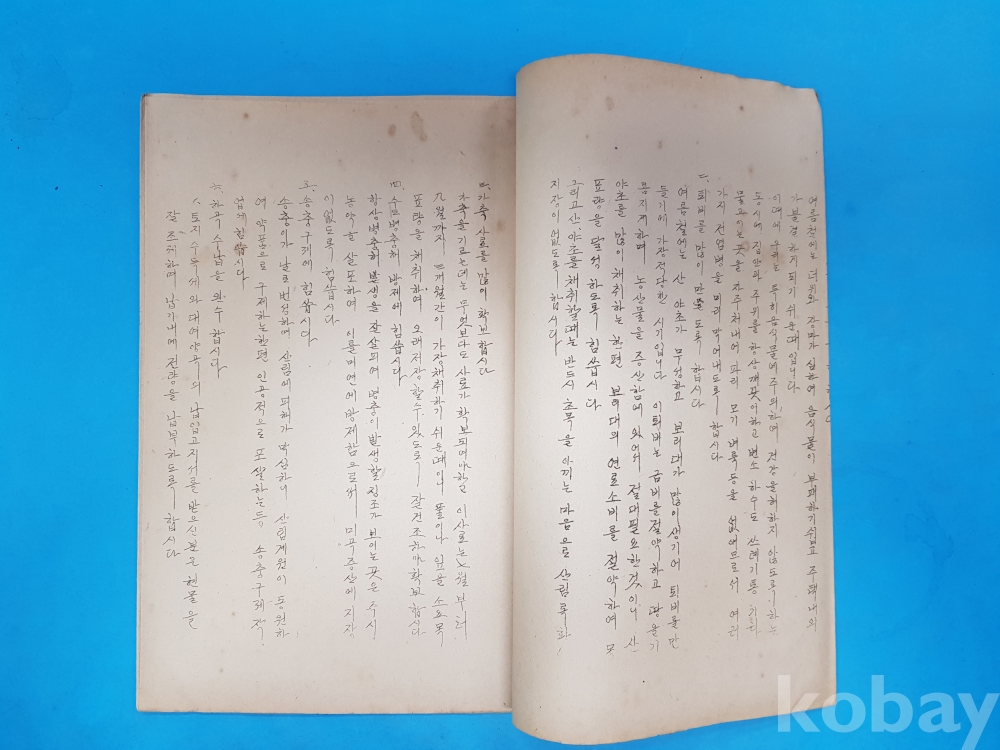 여름철에는 더위와 장마가 심하여 음식물이 부패하기쉽고 주택내외
가 불결하게 되기 쉬운때 입니다
이때에 우리는 특히음식물에 주의하여 건강을해하지 않도록 하는
동시에 집안과 주위를 항상깨끗이하고 변소 하수도 쓰레기통 기타
물고이는곳을 자주처내어 파리 모기 벼룩등을 없애므로서 여러
가지 전염병을 미리 막어내도록 합시다
二、퇴비를 많이 만들도록 합시다
여름철에는 산 야초가 무성하고 보리대가 많이생기어 퇴비를만
들기에 가장적당한 시기입니다 이퇴비는 금비를절약하고 땅을기
름지게하며 농산물을 증산함에 있어서 절대필요한것이니 산
야초를 많이 채취하는 한편 보리대의 연료소비를 절약하여 목
표량을 달성하도록 힘씁시다
그리고산, 야초를채취할때는 반드시 초목을 아끼는 마음으로 산림록화
지장이 없도록 합시다
三、가축사료를 많이 확보합시다
가축을기르는데는 무엇보다도 사료가 확보되여야하고 이사료는 월부터
九월까지 개월간이 가장채취하기 쉬운때이니 풀이나 잎을 소요목
표량을 채취하여 오래저장할수있도록 잘건조하야확보합시다
四、수도병충해 방제에 힘씁시다
항상병충해 발생을 잘살피여 병충이발생할징조가 보이는곳은 즉시
농약을 살포하여 이를미연에방제함으로써 미곡증산에 지장
이없도록 힘씁시다
五、송충구제에 힘씁시다
송충이가 날로번성하여 산림에피해가 막심하니 산림계원이 동원하
여 약품으로 구제하는한편 인공적으로 포살하는등 송충구제작
업에힘씁시다
六、하곡수납을 완수합시다
토지수득세와 대여양곡의 납입고지서를 받으신분은 현물을
잘조제하며 납기내에 전량을 납부하도록 합시다
kobay